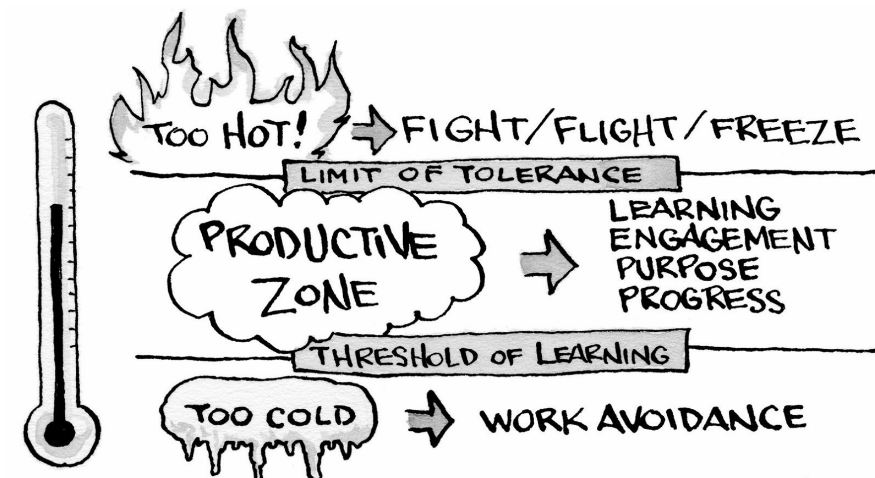 TOO HOT!
FIGHT/FLIGHT/FREEZE
LIMIT OF TOLERANCE
PRODUCTIVE
ZONE
LEARNING
ENGAGEMENT
PURPOSE
PROGRESS
THRESHOLD OF LEARNING
TOO COLD
WORK AVOIDANCE